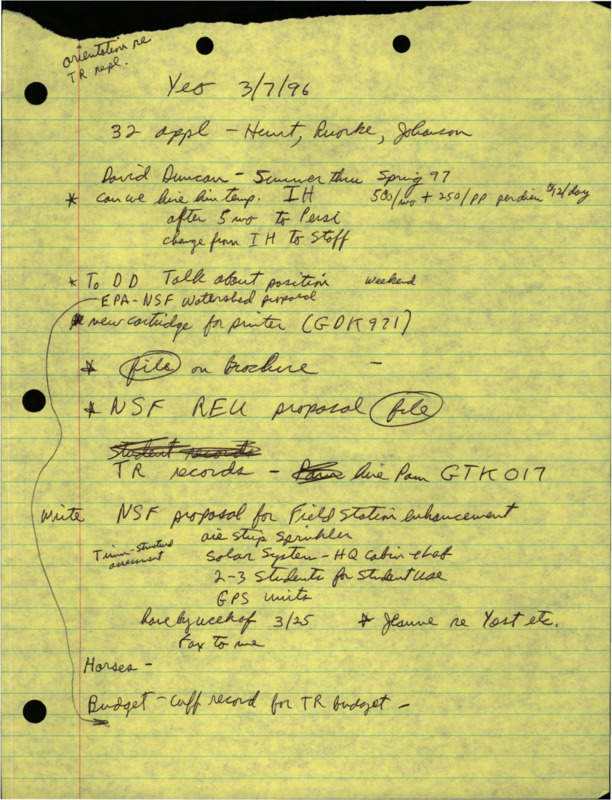 orientation re
TR repl.
Yeo 3/7/96
32 appl - Hunt, Ruorke, Johanson
David Duncan - Summer thru Spring 97
* can we hire him temp. IH 500/mo + 250/pp per diem $12/day
after 5 mo to Persi
change from IH to Staff
* To DD Talk about position weekend
EPA-NSF Watershed proposal
* new cartridge for printer (GDK921)
* file on brochure -
* NSF REU proposal file
Student records
TR records - hire Pam GTK017
Write NSF proposal for Field Station enhancement
air strip sprinkler
assessment Solar System - HQ cabin
2-3 Students for student use
GPS units
Have by week of 3/25 * Jeanne re Yost etc.
Fax to me
Horses -
Budget - cuff record for TR budget -